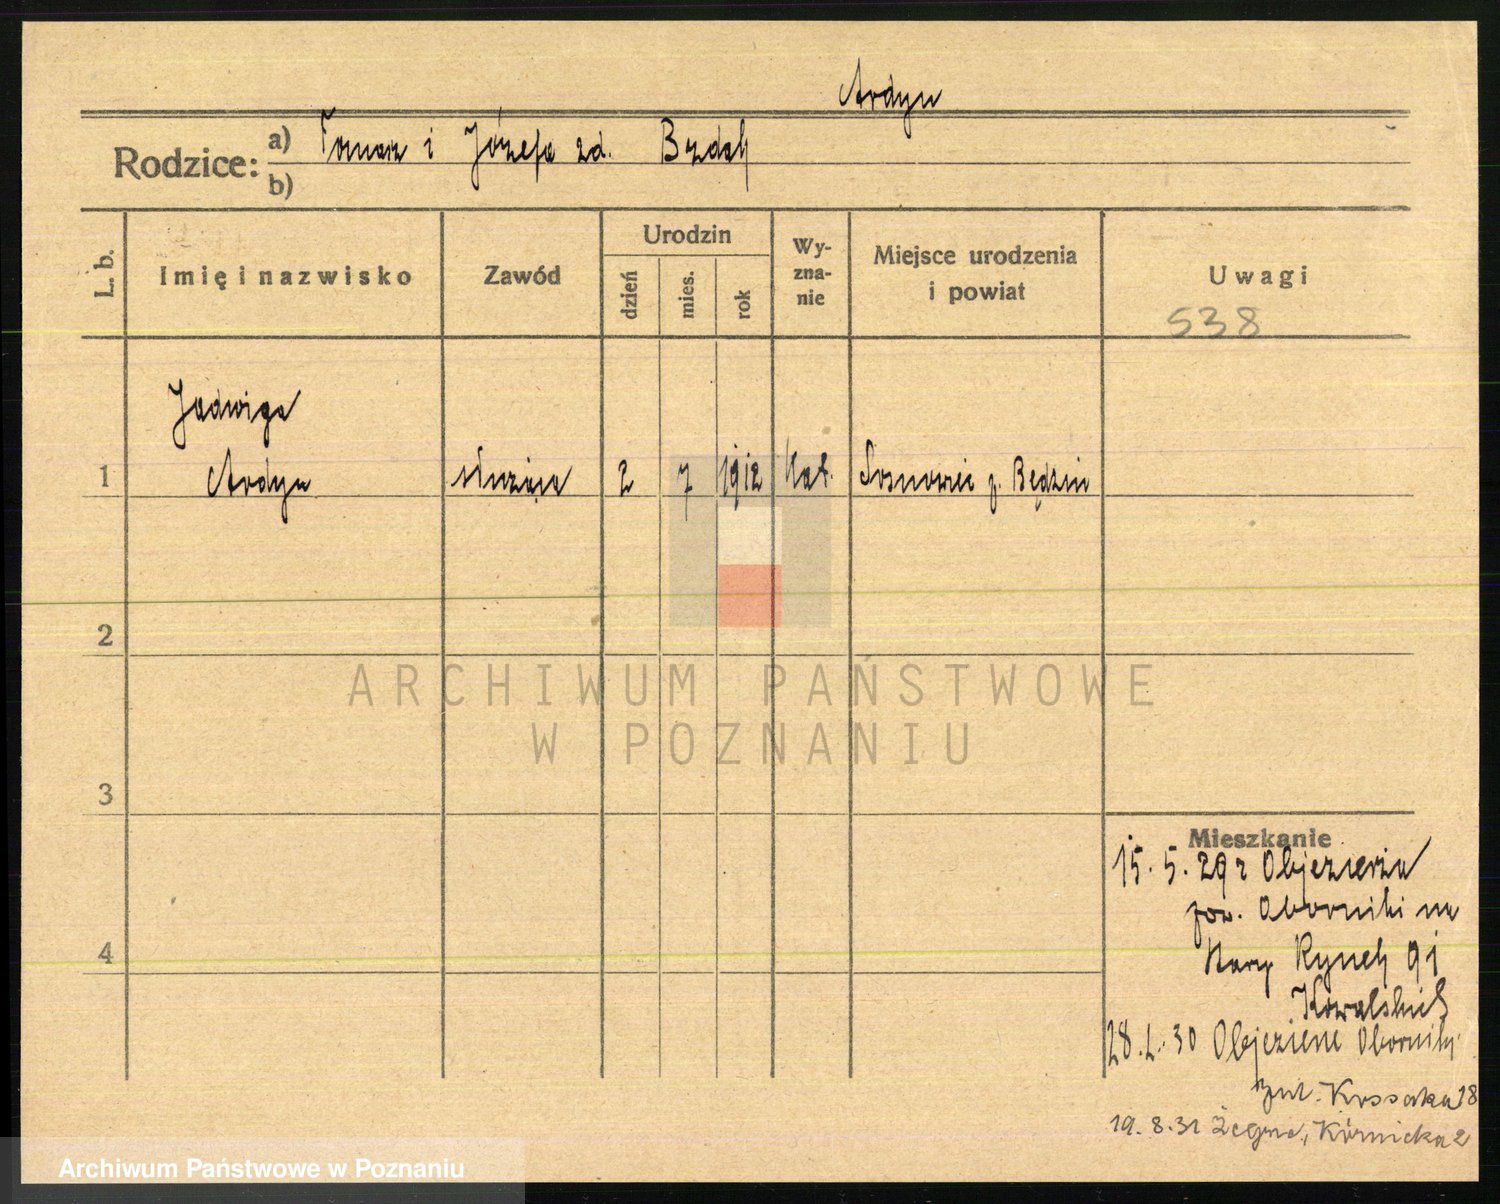 Ardyn
Rodzice: a) Tomasz i Józefa zd. Bzdak
b)
L. b. Imię i nazwisko Zawód Urodzin dzień mies. rok Wy-zna-nie Miejsce urodzenia i powiat Uwagi
538
Jadwiga
1 Ardyn służąca 2 7 1912 kat. Sosnowiec p. Będzin
2
ARCHIWUM PAŃSTWOWE
W POZNANIU
3
Mieszkanie
15. 5. 29 z Objezierza
pow. Oborniki na
Stary Rynek 91
Kowalskich
4
28. 30 Objezierze Oborniki
Kossaka 18
19. 8. 31 Żegrze, Kórnicka 2
Archiwum Państwowe w Poznaniu